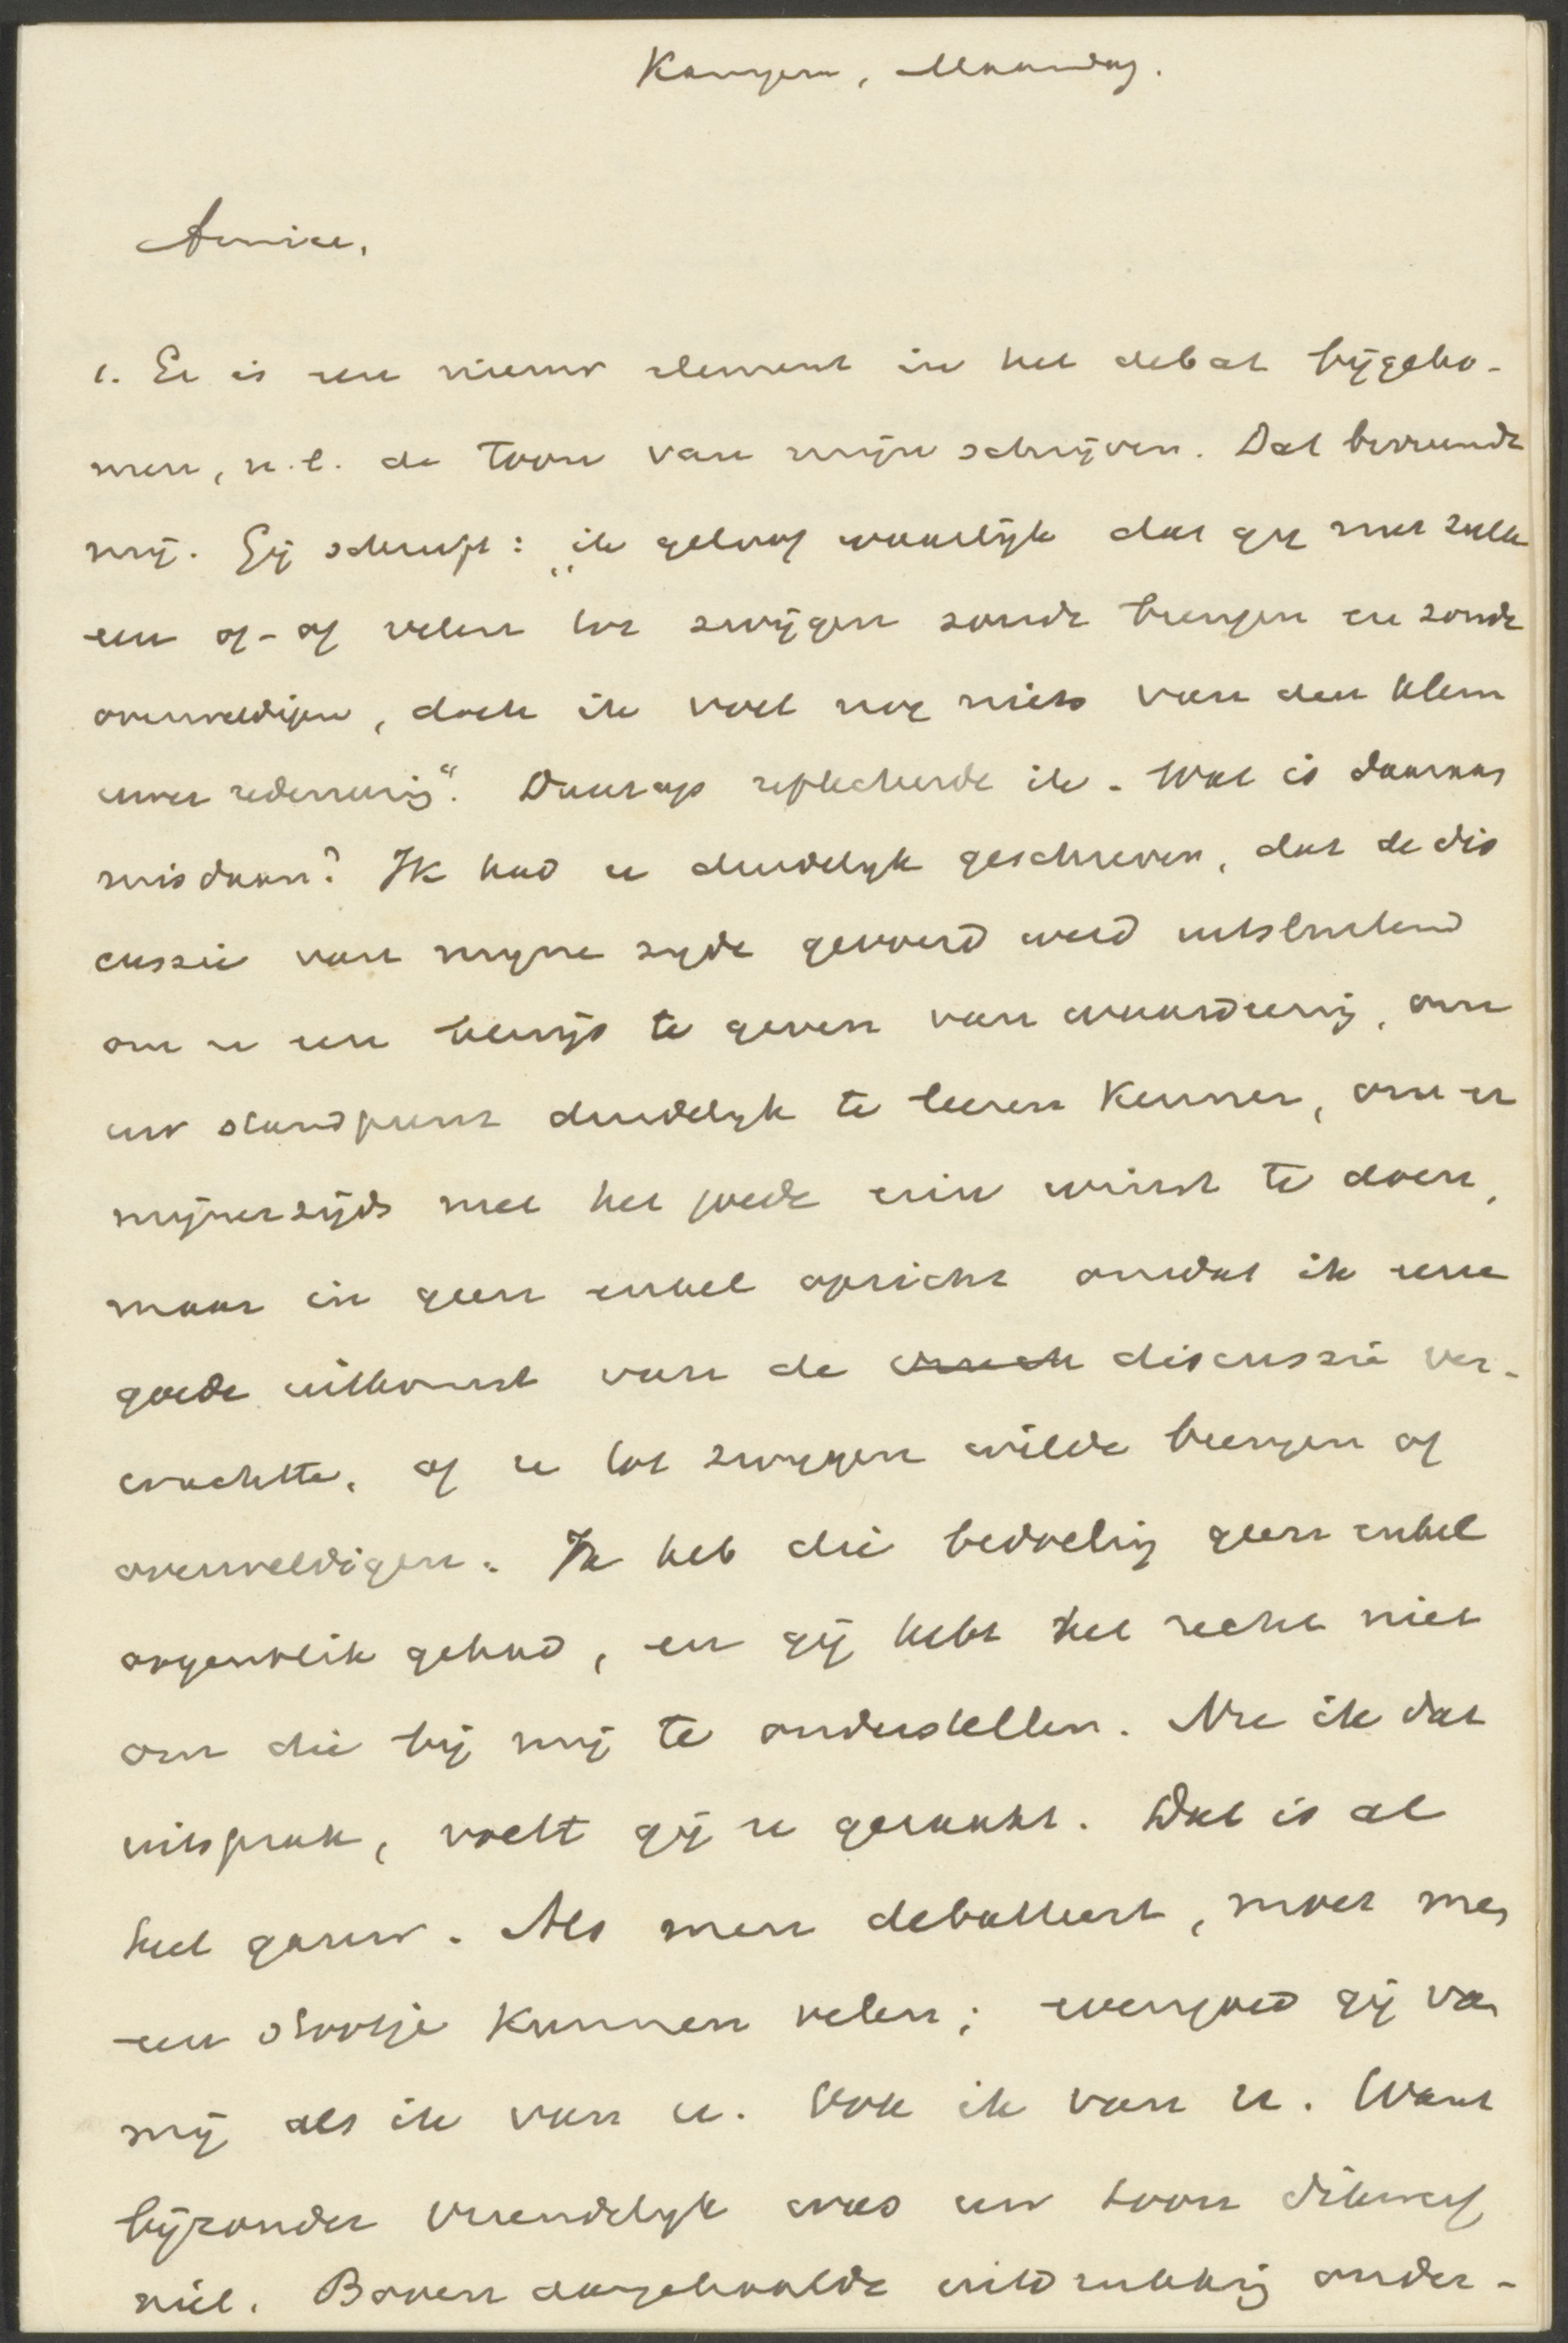 Kampen, Maandag.
Amice,
1. Er is een nieuw element in het debat bijgeko-
men, n.l. de toon van mijn schrijven. Dat bevreemdt
mij. Gij schrijft: „ik geloof waarlijk dat gij met zulk
een of-of velen tot zwijgen zoudt brengen en zoudt
overweldigen, doch ik voel nog niets van den klem
uwer redeneering“. Daarop reflecteerde ik. Wat is daaraan
misdaan? Ik had u duidelijk geschreven, dat de dis
cussie van mijne zijde gevoerd werd uitsluitend
om u een bewijs te geven van waardeering, om
uw standpunt duidelijk te leeren kennen, om er
mijnerzijds met het goede erin winst te doen,
maar in geen enkel opzicht omdat ik eene
goede uitkomst van de discussie ver-
wachtte, of u tot zwijgen wilde brengen of
overweldigen. Ik heb die bedoeling geen enkel
oogenblik gehad, en gij hebt het recht niet
om die bij mij te onderstellen. Nu ik dat
uitsprak, voelt gij u geraakt. Dat is al
heel gauw. Als men debatteert, moet men
een stootje kunnen velen; evengoed gij van
mij als ik van u. Ook ik van u. Want
bijzonder vriendelijk was uw toon dikwerf
niet. Boven aangehaalde uitdrukking onder-